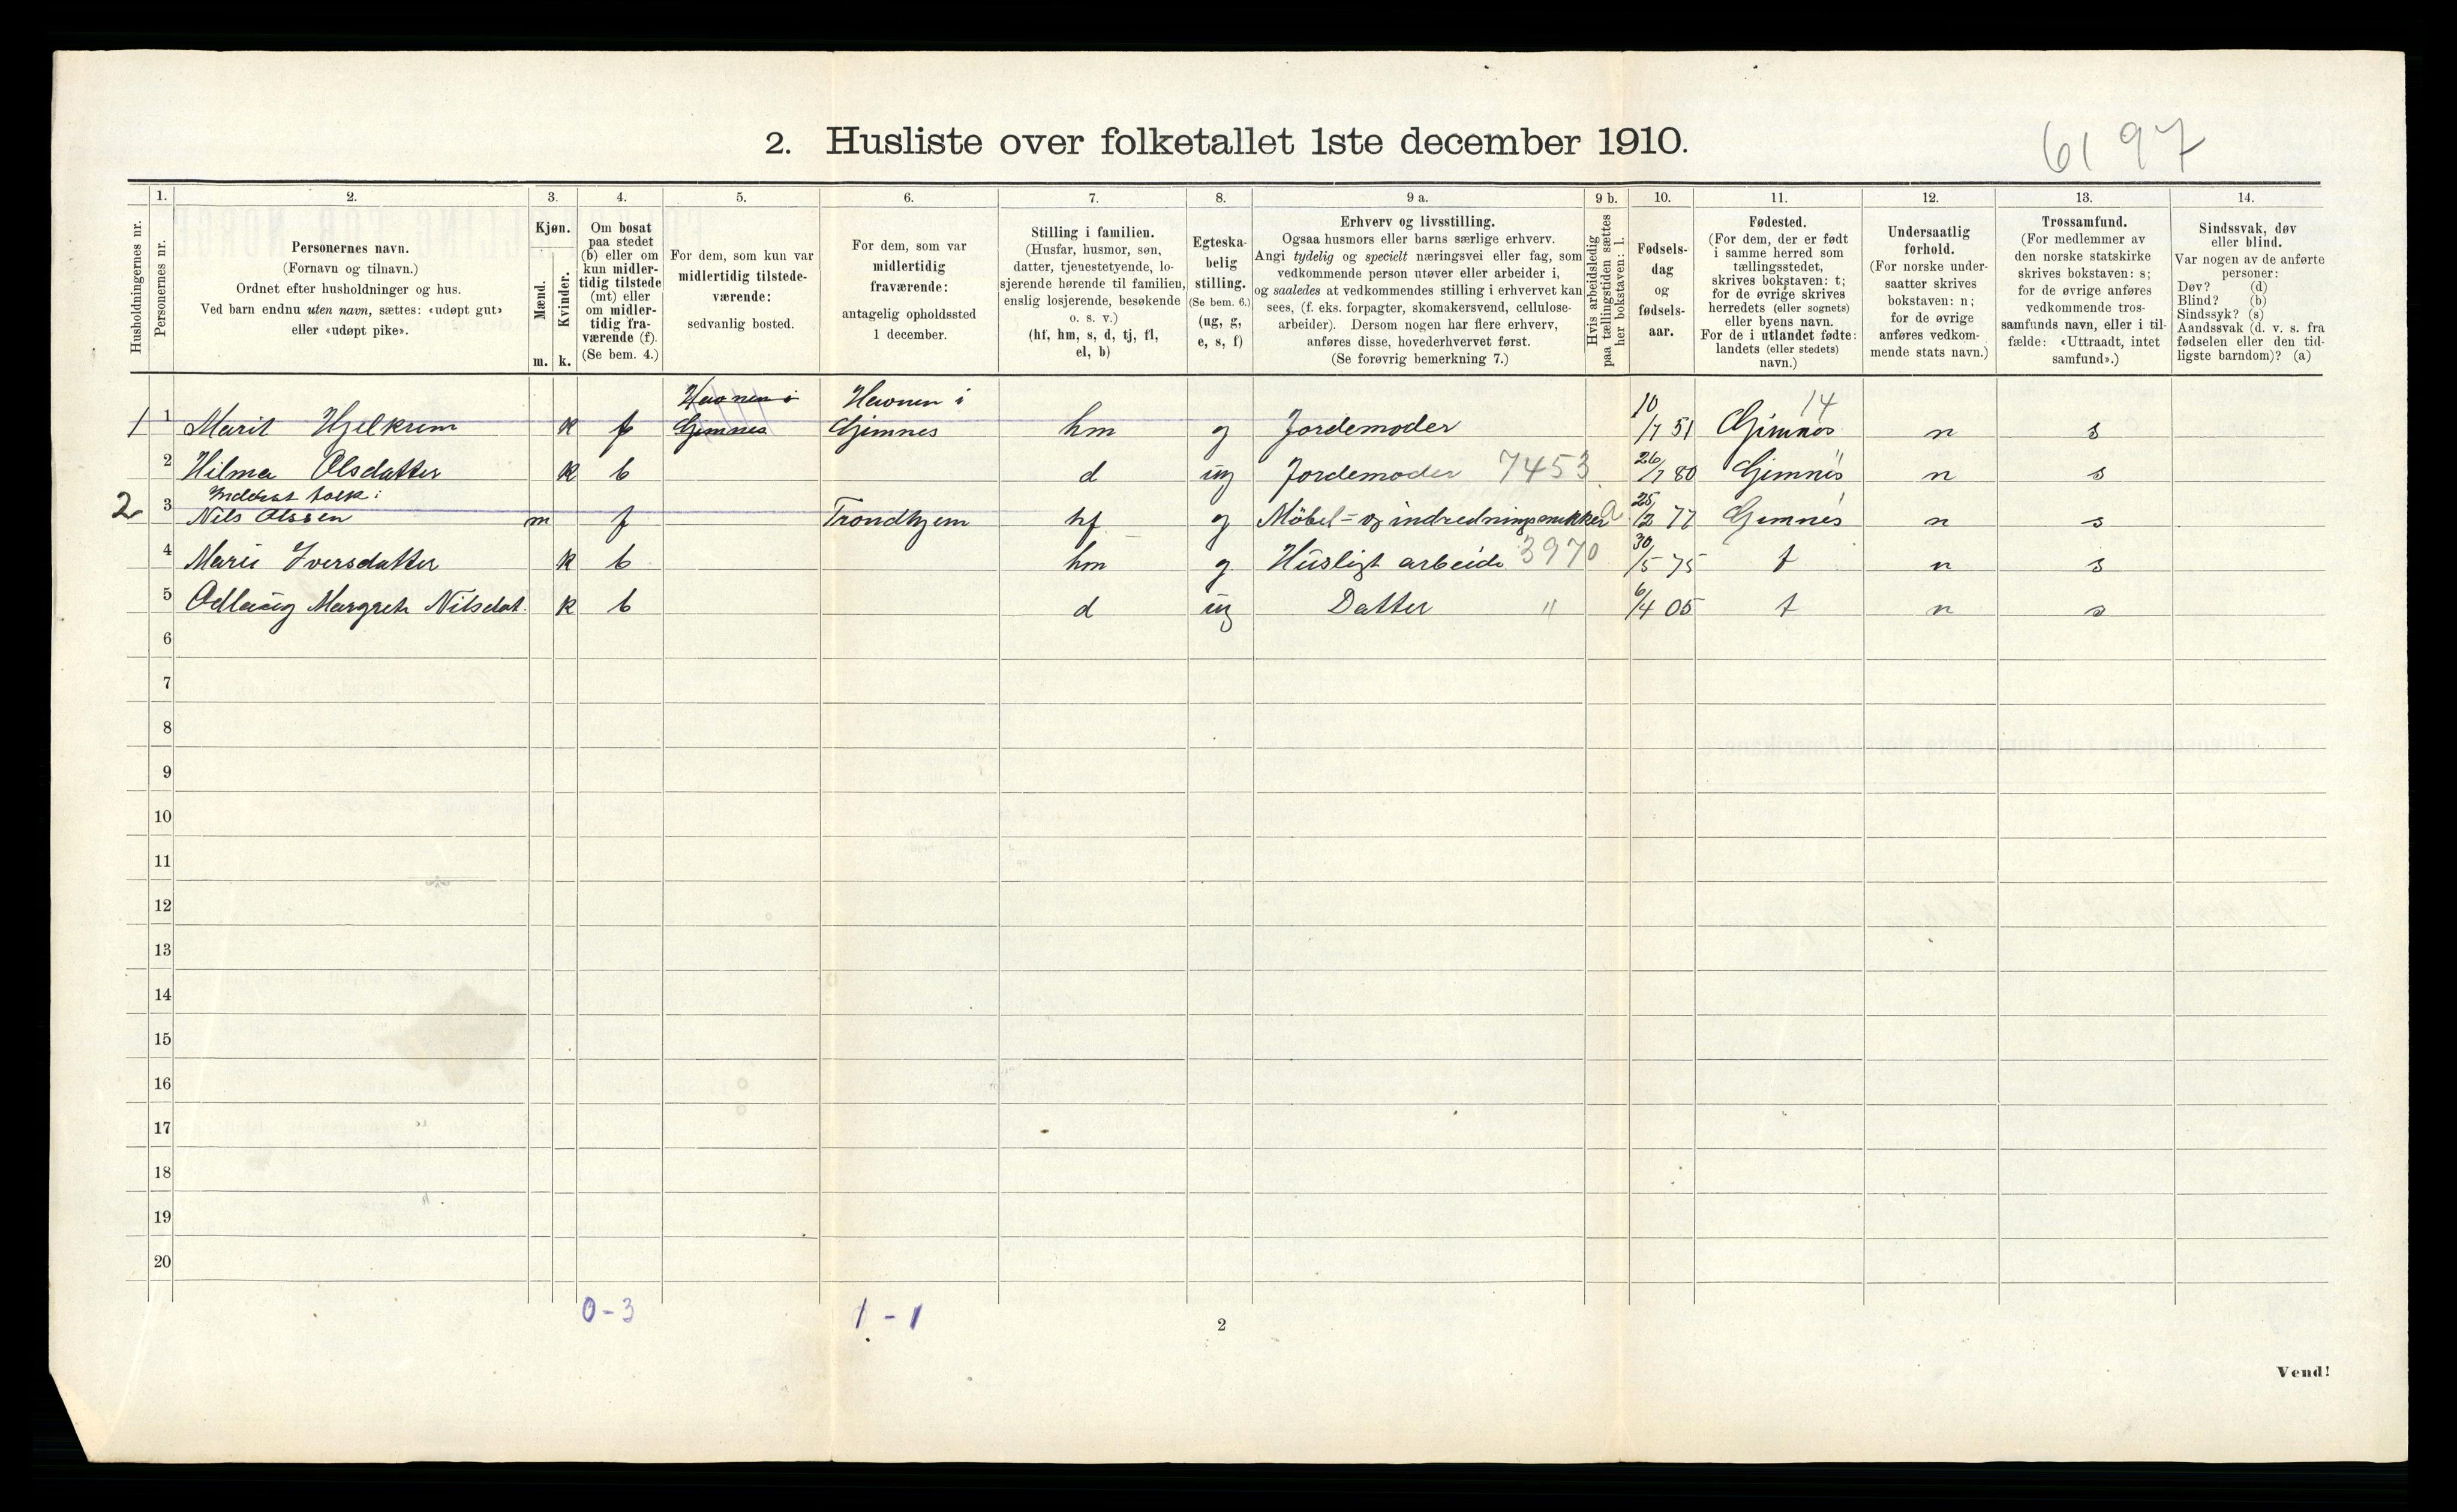 2. Husliste over folketallet 1ste december 1910.
6197
Husholdningernes nr.
1.
Personernes nr.
2.
Personernes navn.
(Fornavn og tilnavn.)
Ordnet efter husholdninger og hus.
Ved barn endnu uten navn, sættes: «udøpt gut»
eller «udøpt pike».
3.
Kjøn.
Mænd.
Kvinder.
m. k.
4.
Om bosat
paa stedet
(b) eller om
kun midler-
tidig tilstede
(mt) eller
om midler-
tidig fra-
værende (f).
(Se bem. 4.)
5.
For dem, som kun var
midlertidig tilstede-
værende:
sedvanlig bosted.
6.
For dem, som var
midlertidig
fraværende:
antagelig opholdssted
1 december.
7.
Stilling i familien.
(Husfar, husmor, søn,
datter, tjenestetyende, lo-
sjerende hørende til familien,
enslig losjerende, besøkende
o. s. v.)
(hf, hm, s, d, tj, fl,
el, b)
8.
Egteska-
belig
stilling.
(Se bem. 6.)
(ug, g,
e, s, f)
9 a.
Erhverv og livsstilling.
Ogsaa husmors eller barns særlige erhverv.
Angi tydelig og specielt næringsvei eller fag, som
vedkommende person utøver eller arbeider i,
og saaledes at vedkommendes stilling i erhvervet kan
sees, (f. eks. forpagter, skomakersvend, cellulose-
arbeider). Dersom nogen har flere erhverv,
anføres disse, hovederhvervet først.
(Se forøvrig bemerkning 7.)
9 b.
Hvis arbeidsledig
paa tællingstiden sættes
her bokstaven: l.
10.
Fødsels-
dag
og
fødsels-
aar.
11.
Fødested.
(For dem, der er født
i samme herred som
tællingsstedet,
skrives bokstaven: t;
for de øvrige skrives
herredets (eller sognets)
eller byens navn.
For de i utlandet fødte:
landets (eller stedets)
navn.)
12.
Undersaatlig
forhold.
(For norske under-
saatter skrives
bokstaven: n;
for de øvrige
anføres vedkom-
mende stats navn.)
13.
Trossamfund.
(For medlemmer av
den norske statskirke
skrives bokstaven: s;
for de øvrige anføres
vedkommende tros-
samfunds navn, eller i til-
fælde: «Uttraadt, intet
samfund».)
14.
Sindssvak, døv
eller blind.
Var nogen av de anførte
personer:
Døv? (d)
Blind? (b)
Sindssyk? (s)
Aandssvak (d. v. s. fra
fødselen eller den tid-
ligste barndom)? (a)
Havnen i Havnen i 10 14
1 1 Marit Hjelkrem k f Gimnes Gimnes hm g Jordemoder /7 51 Gimnes n s
2 Hilma Olsdatter k b d ug Jordemoder 7453 26/7 80 Gimnes n s
Inderst folk:
2 3 Nils Olssen m f Trondhjem hf g Möbel- og indredningssnekker a 25/2 77 Gimnes n s
4 Marie Iversdatter k b hm g Husligt arbeide 3970 30/5 75 t n s
5 Odlaug Margrete Nilsdat. k b d ug Datter " 6/4 05 t n s
6
7
8
9
10
11
12
13
14
15
16
17
18
19
20
0-3 1-1
2
Vend!